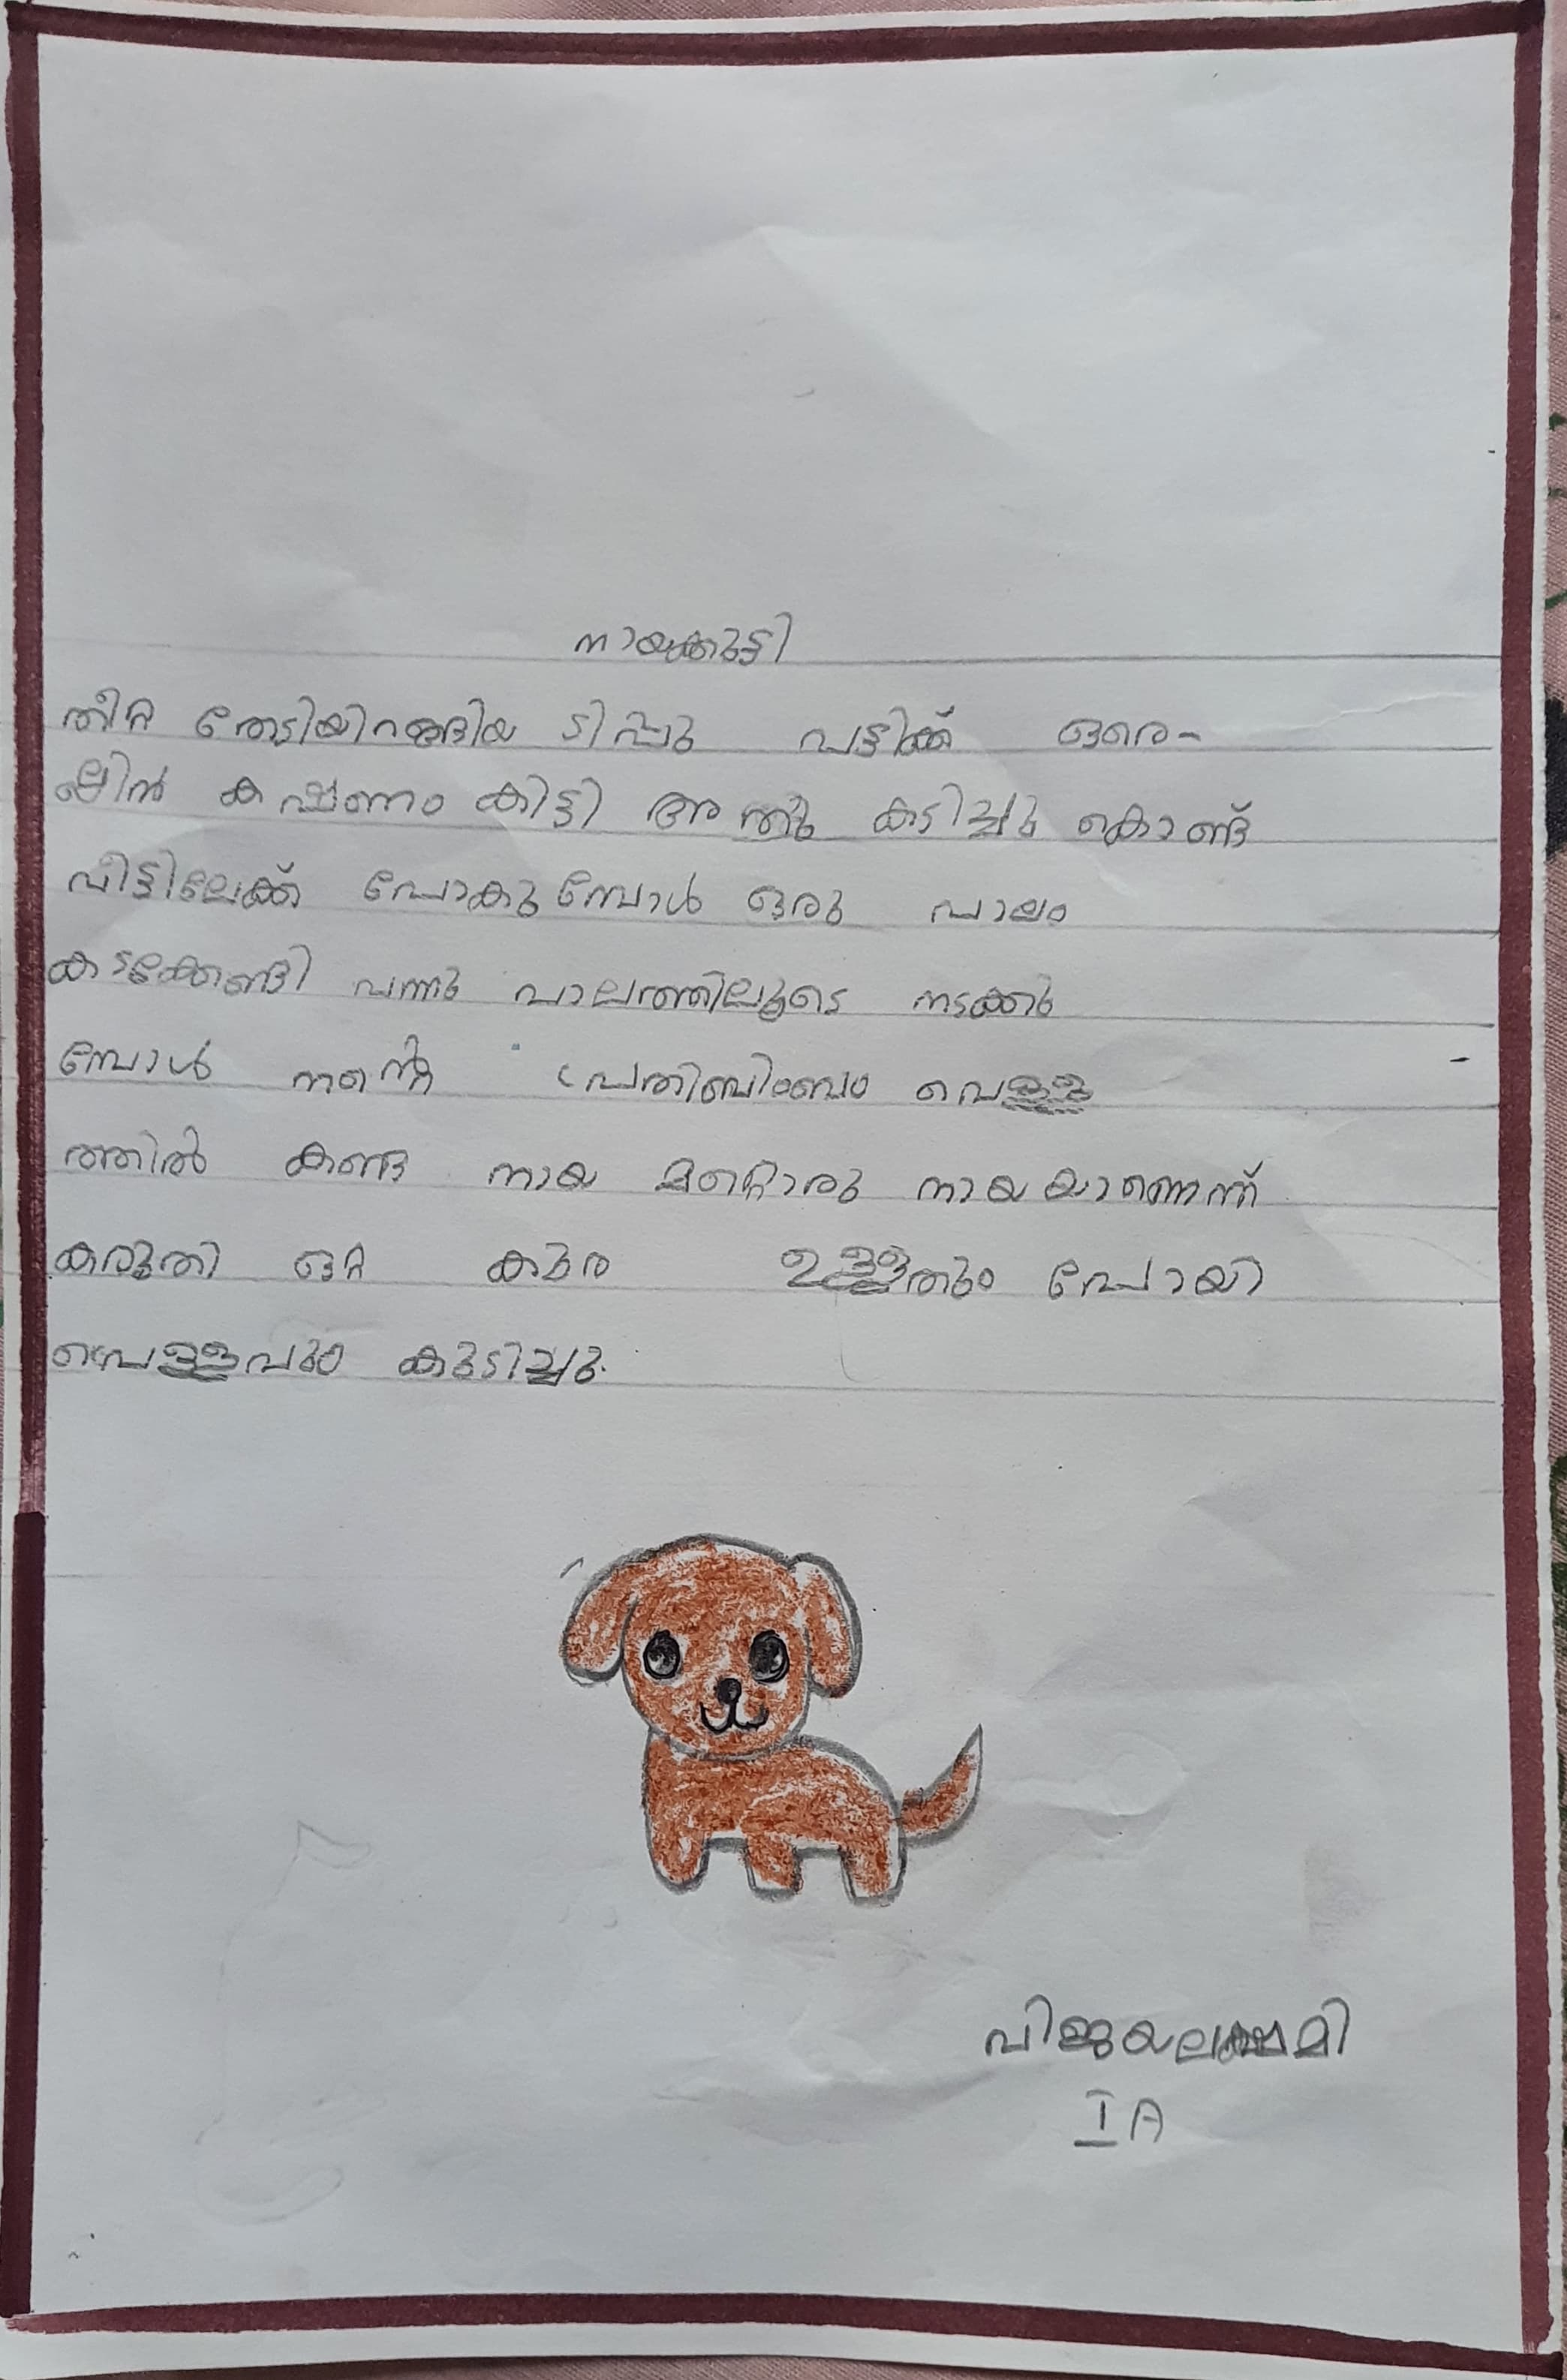 നായക്കുട്ടി
തീറ്റ തേടിയിറങ്ങിയ ടിപ്പു പട്ടിക്ക് ഒരെ-
ല്ലിൻ കഷ്ണണം കിട്ടി അതു കടിച്ചു കൊണ്ട്
വീട്ടിലേക്ക് പോകുമ്പോൾ ഒരു പാലം
കടക്കേണ്ടി വന്നു പാലത്തിലൂടെ നടക്കു
മ്പോൾ തന്റെ പ്രതിബിംബം വെള്ള
ത്തിൽ കണ്ട നായ മറ്റൊരു നായയാണെന്ന്
കരുതി ഒറ്റ കുര ഉള്ളതും പോയി
വെള്ളവും കുടിച്ചു.
വിജയലക്ഷ്മി
I A